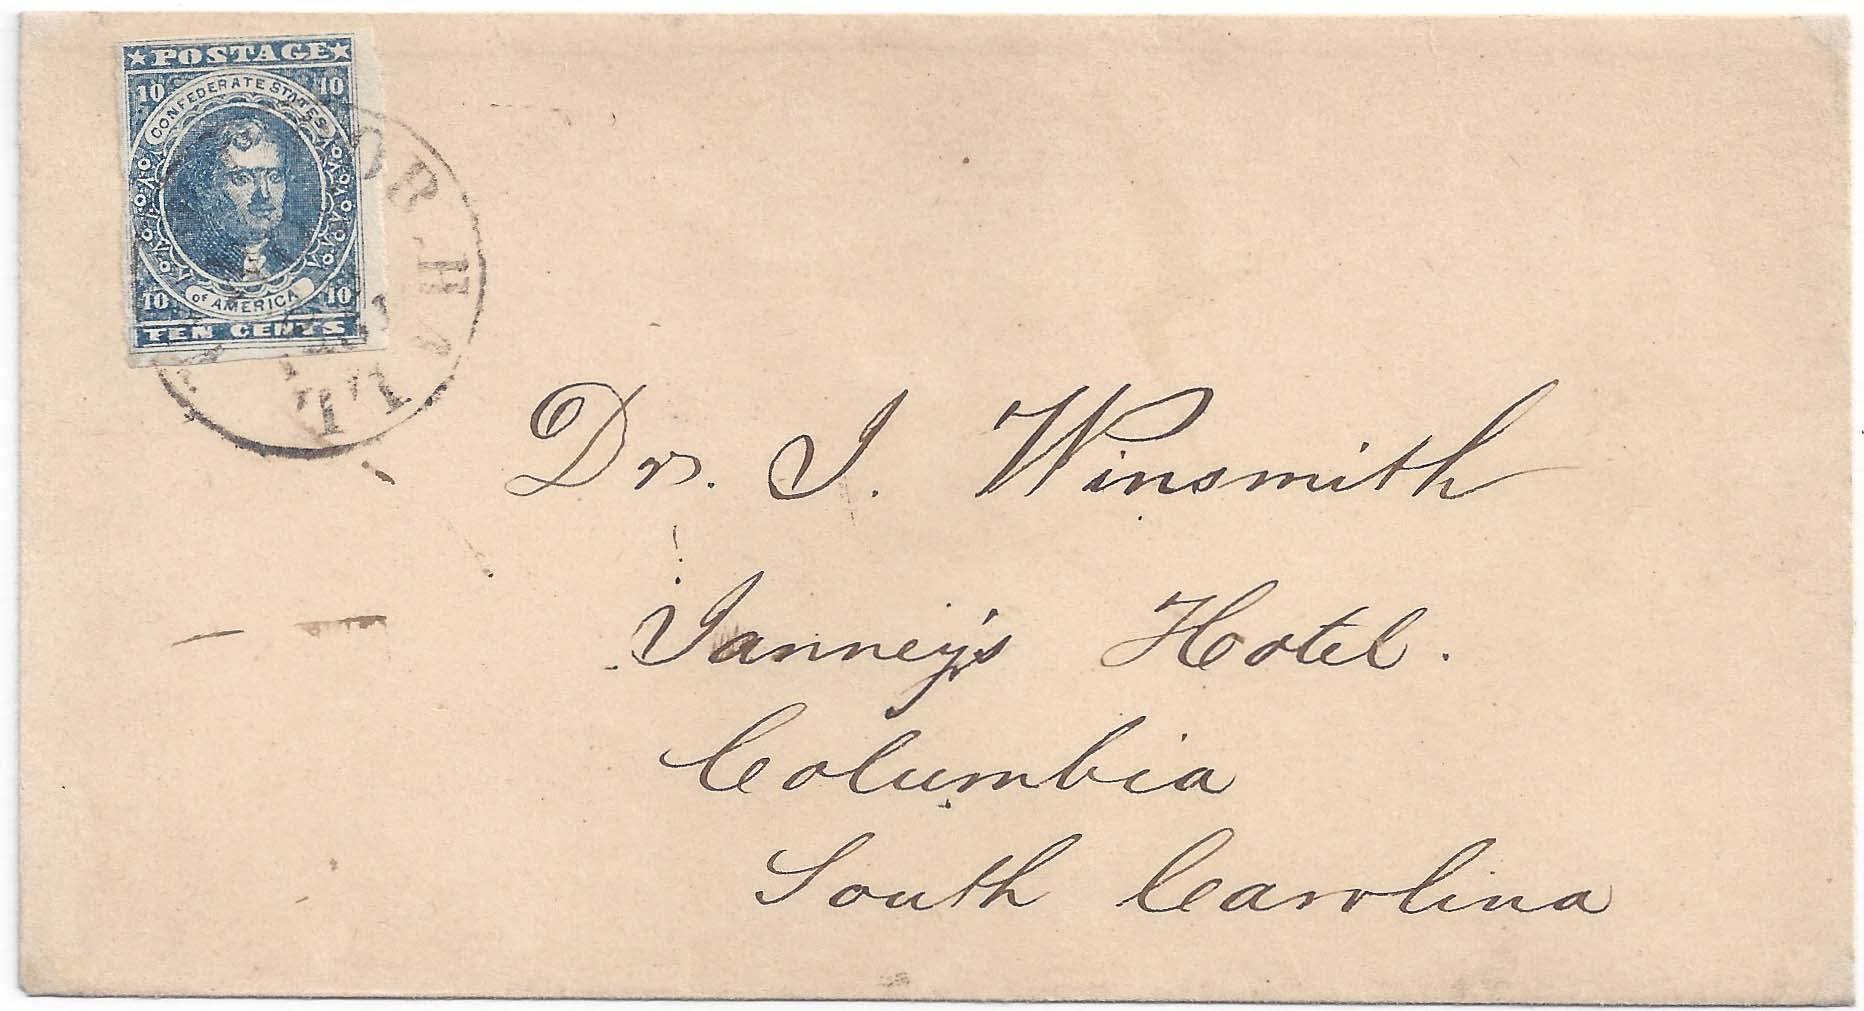 ★POSTAGE★
10 10
CONFEDERATE STATES
of AMERICA
10 10
TEN CENTS
Dr. J. Winsmith
Janney's Hotel.
Columbia
South Carolina